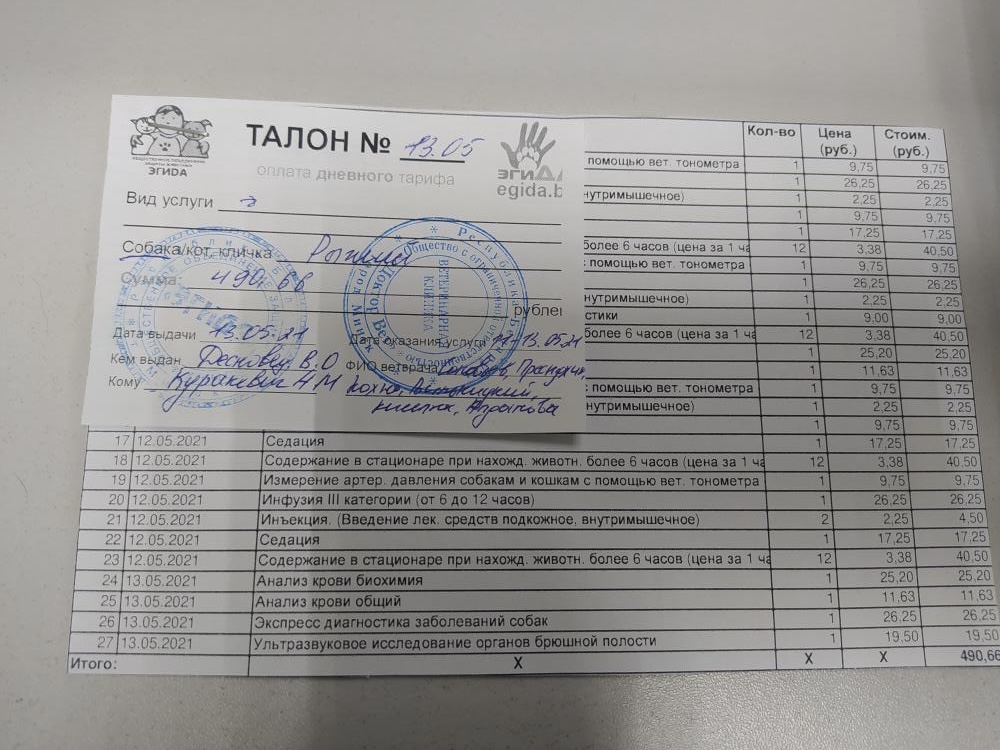 ОБЩЕСТВЕННОЕ ОБЪЕДИНЕНИЕ
ЗАЩИТЫ ЖИВОТНЫХ
ЭГИДА
ТАЛОН № 13.05
оплата дневного тарифа
ЭГИДА
egida.b
Вид услуги
Собака/кот, кличка Рыжий
Сумма: 490,66 рублей
Дата выдачи 13.05.21
Дата оказания услуги 11-13.05.21
Кем выдан В.О
ФИО ветврача
Кому Куракевич А.М
Республика Б
Общество с ограниченной ответственностью
ВЕТЕРИНАРНАЯ КЛИНИКА
Кол-во Цена (руб.) Стоим. (руб.)
помощью вет. тонометра 1 9,75 9,75
1 26,25 26,25
нутримышечное) 1 2,25 2,25
1 9,75 9,75
1 17,25 17,25
более 6 часов (цена за 1 ча 12 3,38 40,50
с помощью вет. тонометра 1 9,75 9,75
1 26,25 26,25
нутримышечное) 1 2,25 2,25
стики 1 9,00 9,00
более 6 часов (цена за 1 ча 12 3,38 40,50
1 25,20 25,20
1 11,63 11,63
с помощью вет. тонометра 1 9,75 9,75
нутримышечное) 1 2,25 2,25
1 9,75 9,75
17 12.05.2021 Седация 1 17,25 17,25
18 12.05.2021 Содержание в стационаре при нахожд. животн. более 6 часов (цена за 1 ча 12 3,38 40,50
19 12.05.2021 Измерение артер. давления собакам и кошкам с помощью вет. тонометра 1 9,75 9,75
20 12.05.2021 Инфузия III категории (от 6 до 12 часов) 1 26,25 26,25
21 12.05.2021 Инъекция. (Введение лек. средств подкожное, внутримышечное) 2 2,25 4,50
22 12.05.2021 Седация 1 17,25 17,25
23 12.05.2021 Содержание в стационаре при нахожд. животн. более 6 часов (цена за 1 ча 12 3,38 40,50
24 13.05.2021 Анализ крови биохимия 1 25,20 25,20
25 13.05.2021 Анализ крови общий 1 11,63 11,63
26 13.05.2021 Экспресс диагностика заболеваний собак 1 26,25 26,25
27 13.05.2021 Ультразвуковое исследование органов брюшной полости 1 19,50 19,50
Итого: X X X 490,66